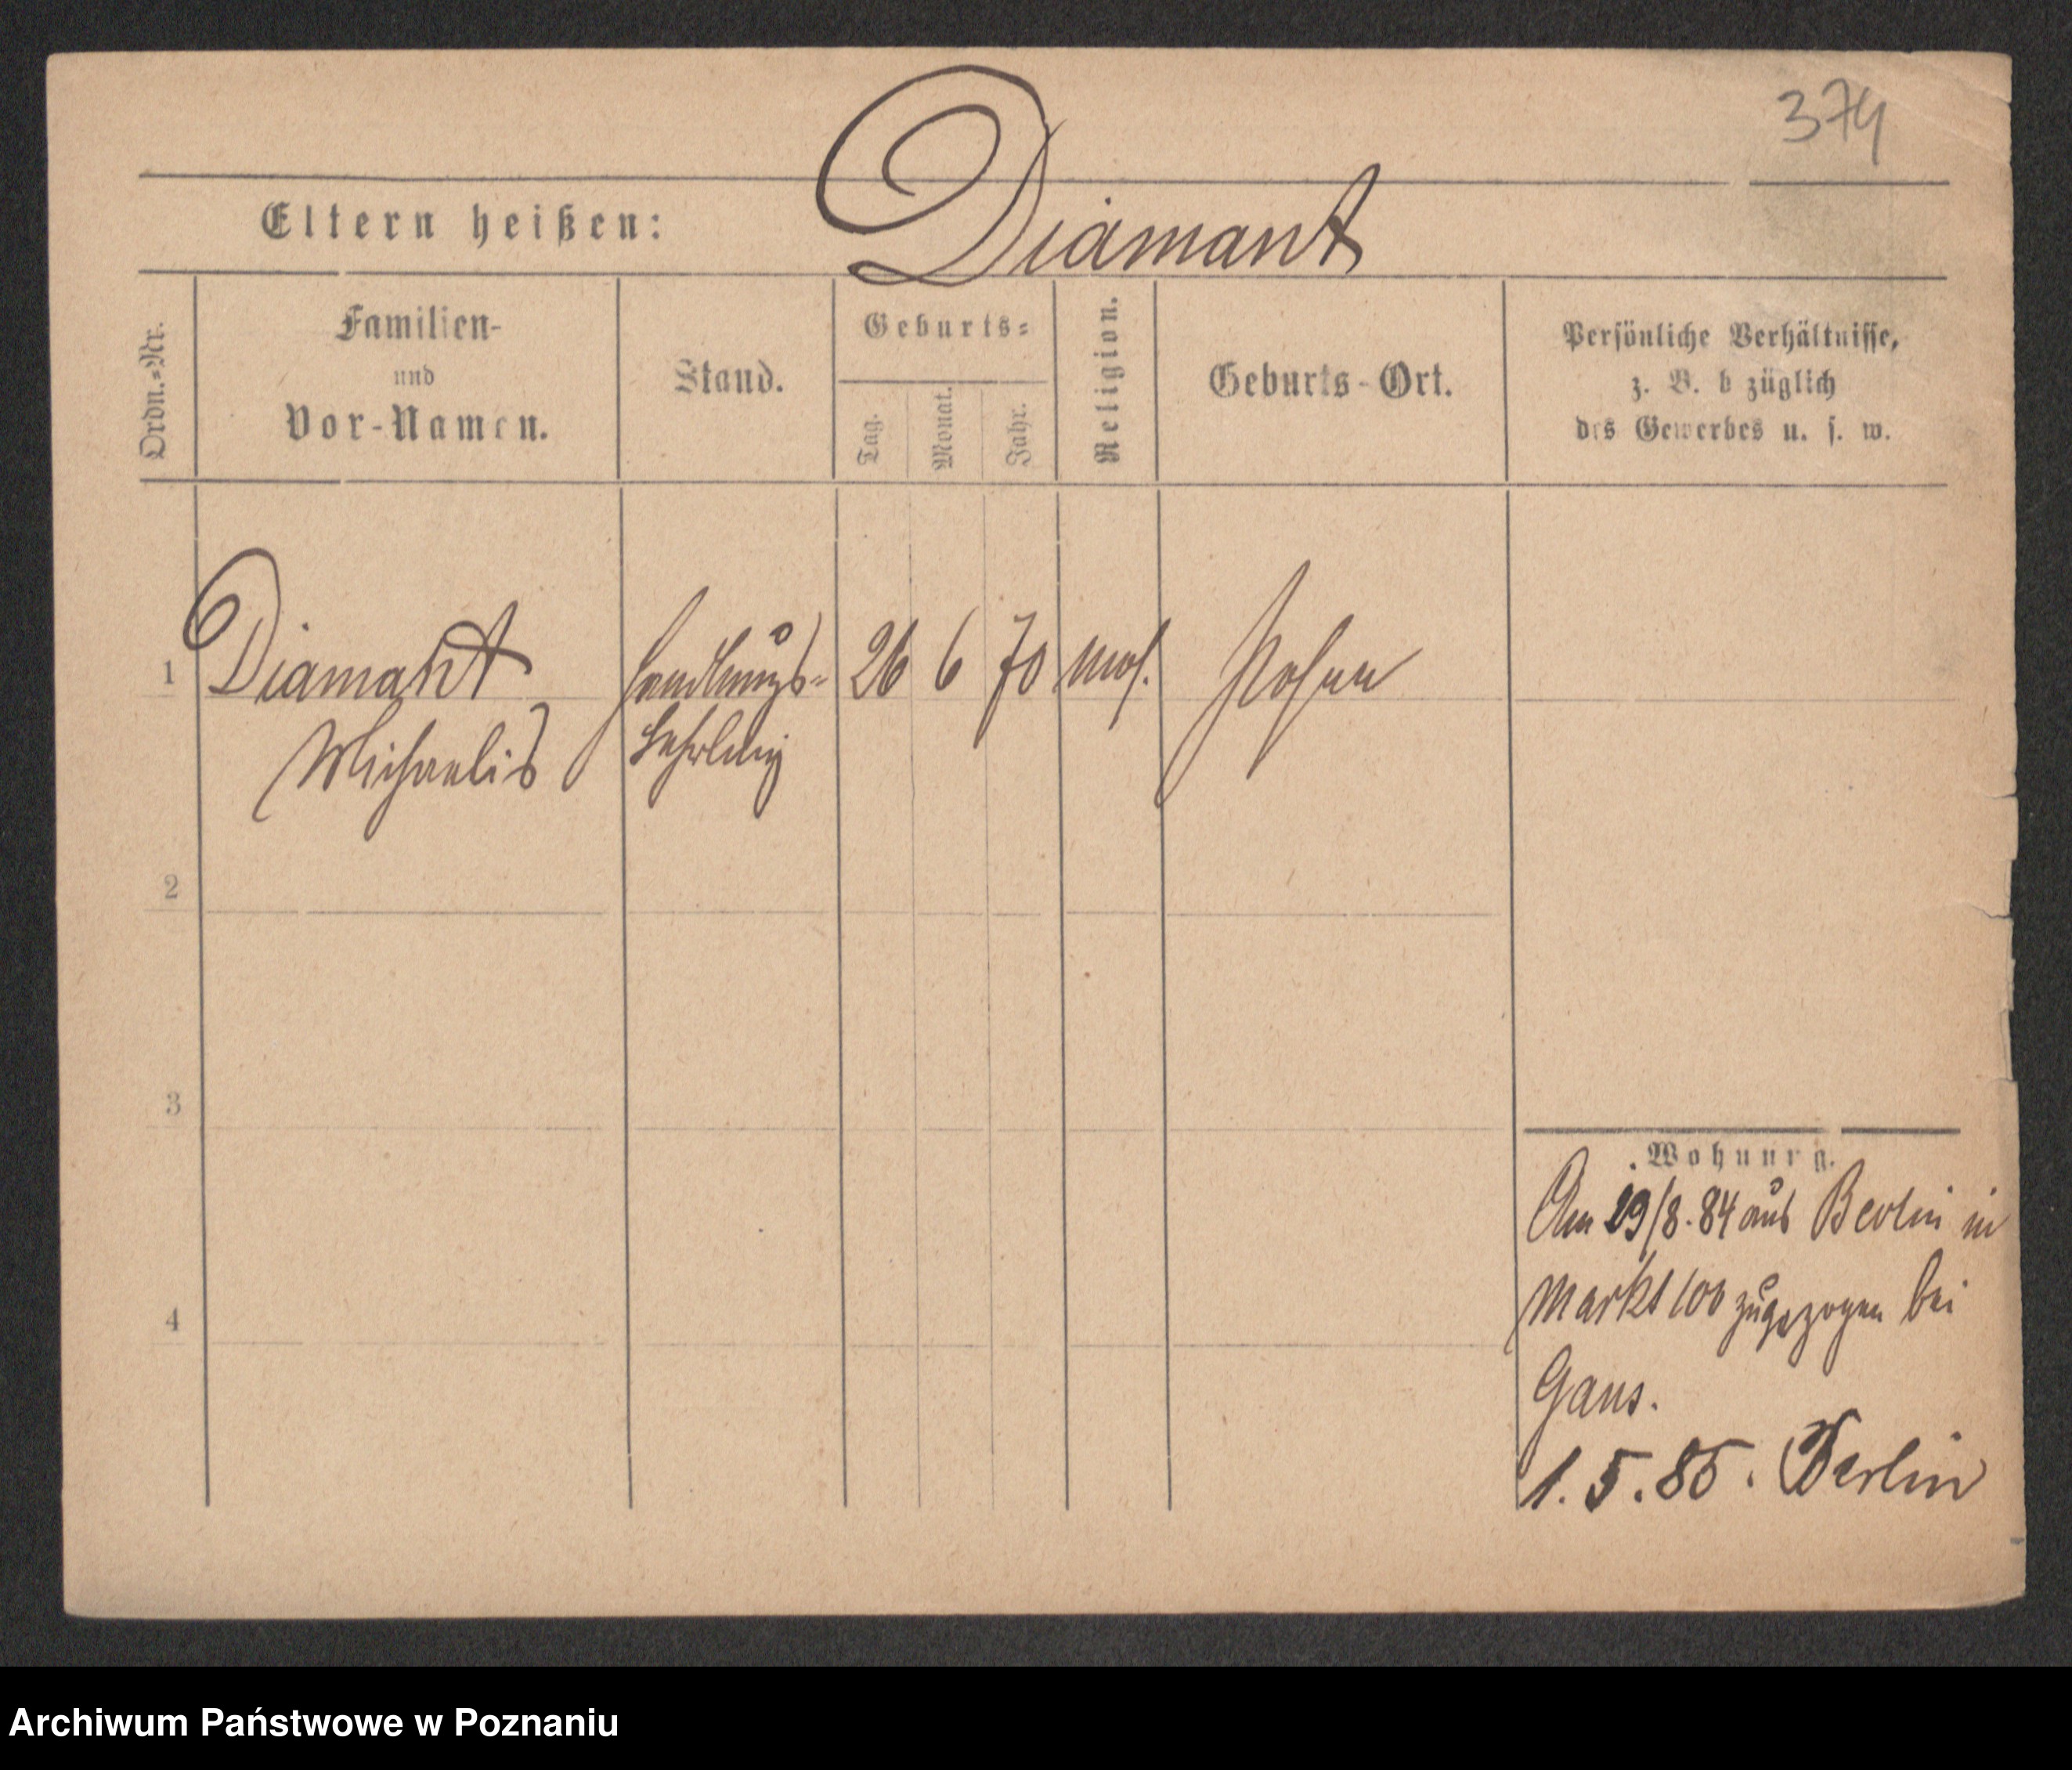 374
Diamant
Eltern heißen:
Ordn.-Nr.
Familien-
und
Vor-Namen.
Stand.
Geburts-
Tag.
Monat.
Jahr.
Religion.
Geburts-Ort.
Persönliche Verhältnisse,
z. B. b züglich
des Gewerbes u. s. w.
1 Diamant Handlungs- 26 6 70 mos. Posen
Michaelis Lehrling
2
3
4
Wohnung.
Am 29/8.84 aus Berlin in
Markt 100 zugezogen bei
Gans.
1.5.85. Berlin
Archiwum Państwowe w Poznaniu